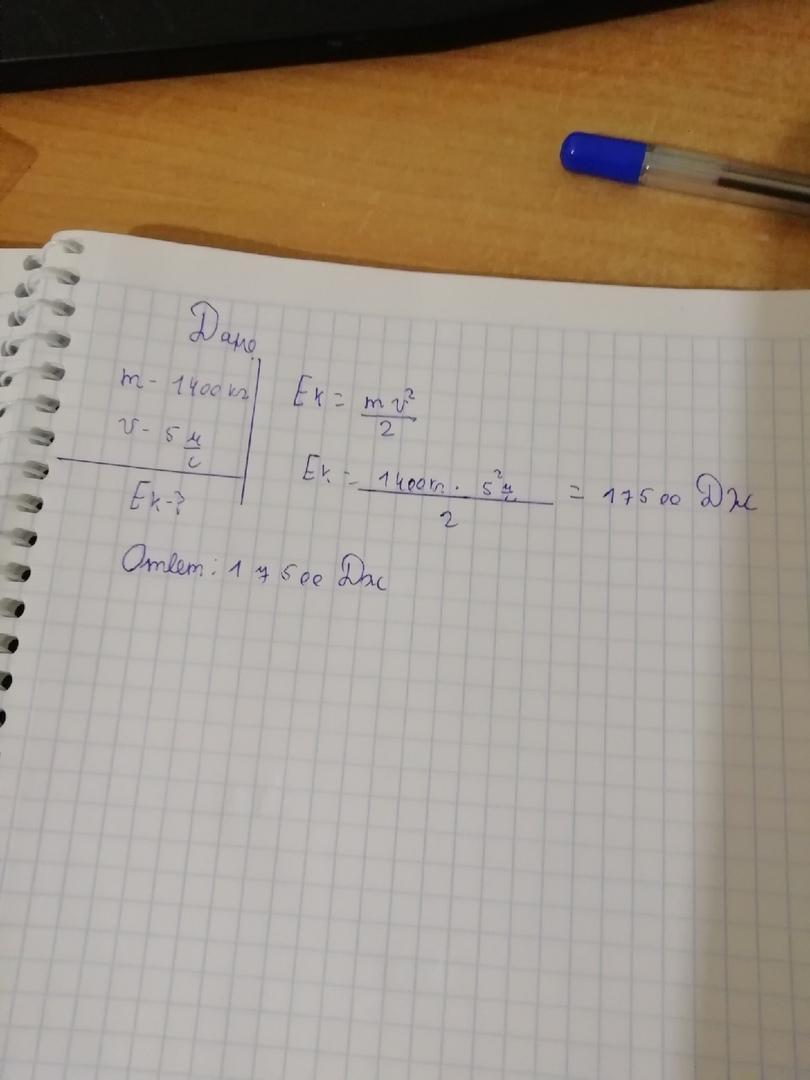 Дано
m - 1400 кг
v - 5 м/с
Eк - ?
Eк = mv²/2
Eк = 1400кг · 5² м/с / 2 = 17500 Дж
Ответ: 17500 Дж